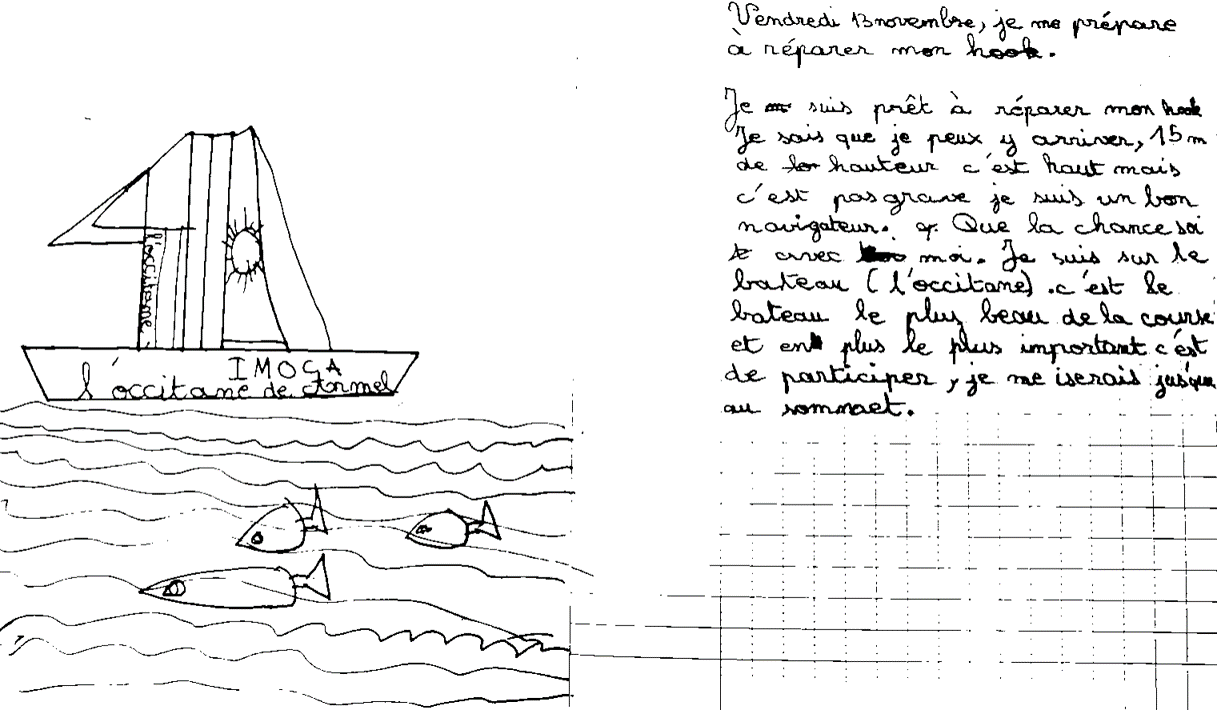 l'occitane
IMOCA
l'occitane de Armel
Vendredi 13 novembre, je me prépare
à réparer mon hook.
Je suis prêt à réparer mon hook
Je sais que je peux y arriver, 15m
de hauteur c'est haut mais
c'est pas grave je suis un bon
navigateur. Que la chance soi
t avec moi. Je suis sur le
bateau (l'occitane). c'est le
bateau le plus beau de la course
et en plus le plus important c'est
de participer, je me iserais jusqu
au sommet.